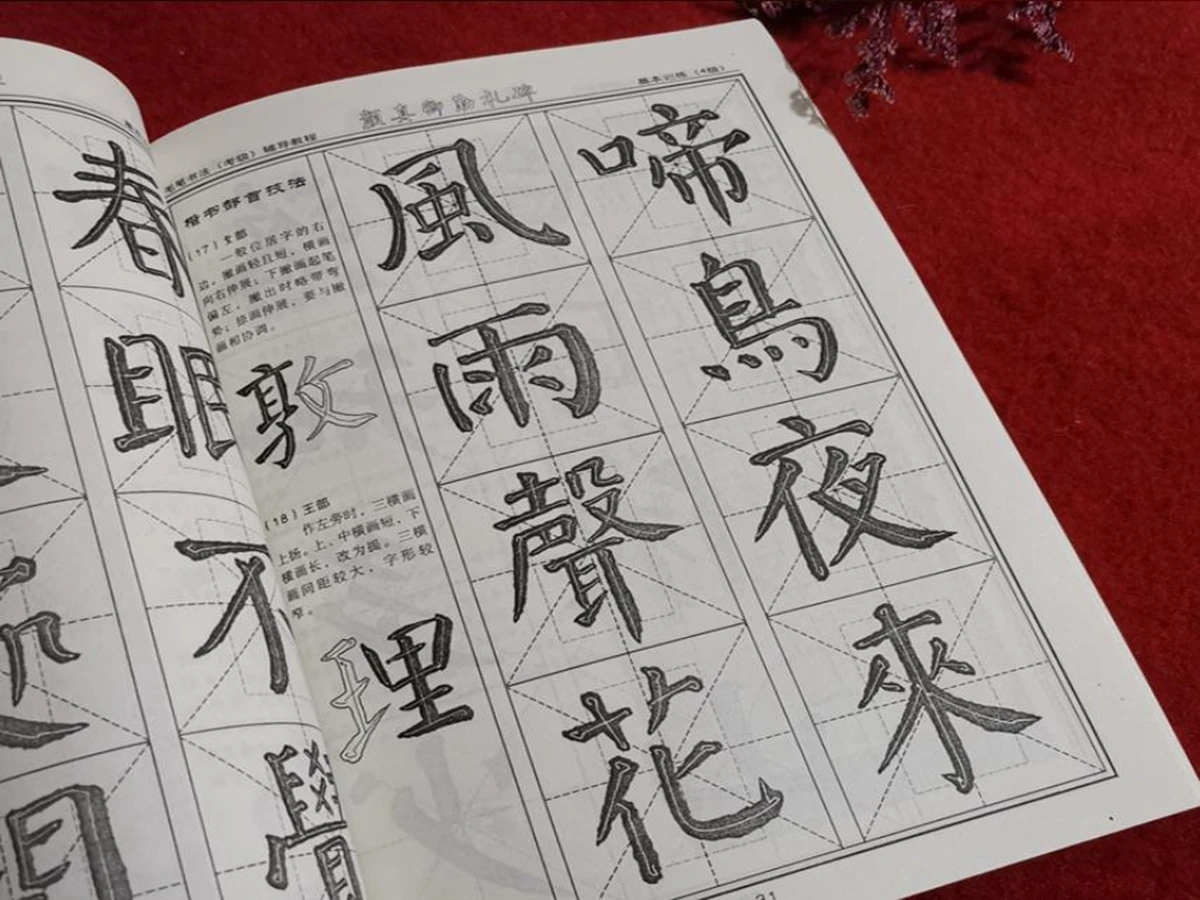 春
眠
不
覺
毛笔书法《考级》辅导教程
颜真卿勤礼碑
基本训练（4级）
啼
鳥
夜
來
風
雨
聲
花
楷书部首技法
（17）攵部
一般位居字的右
边。撇画轻且短，横画
向右伸展；下撇画起笔
偏左，撇出时略带弯
势；捺画伸展，要与撇
画相协调。
敦
（18）王部
作左旁时，三横画
上扬。上、中横画短，下
横画长，改为提。三横
画间距较大，字形较
窄。
理